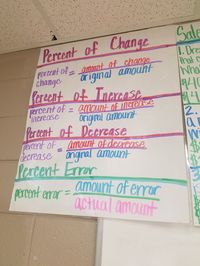 Percent of Change
percent of change = amount of change
original amount
Percent of Increase
percent of increase = amount of increase
original amount
Percent of Decrease
percent of decrease = amount of decrease
original amount
Percent Error
percent error = amount of error
actual amount